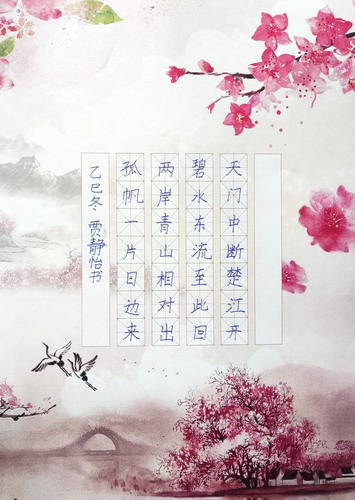 天门中断楚江开
碧水东流至此回
两岸青山相对出
孤帆一片日边来
乙巳冬 贾静怡书